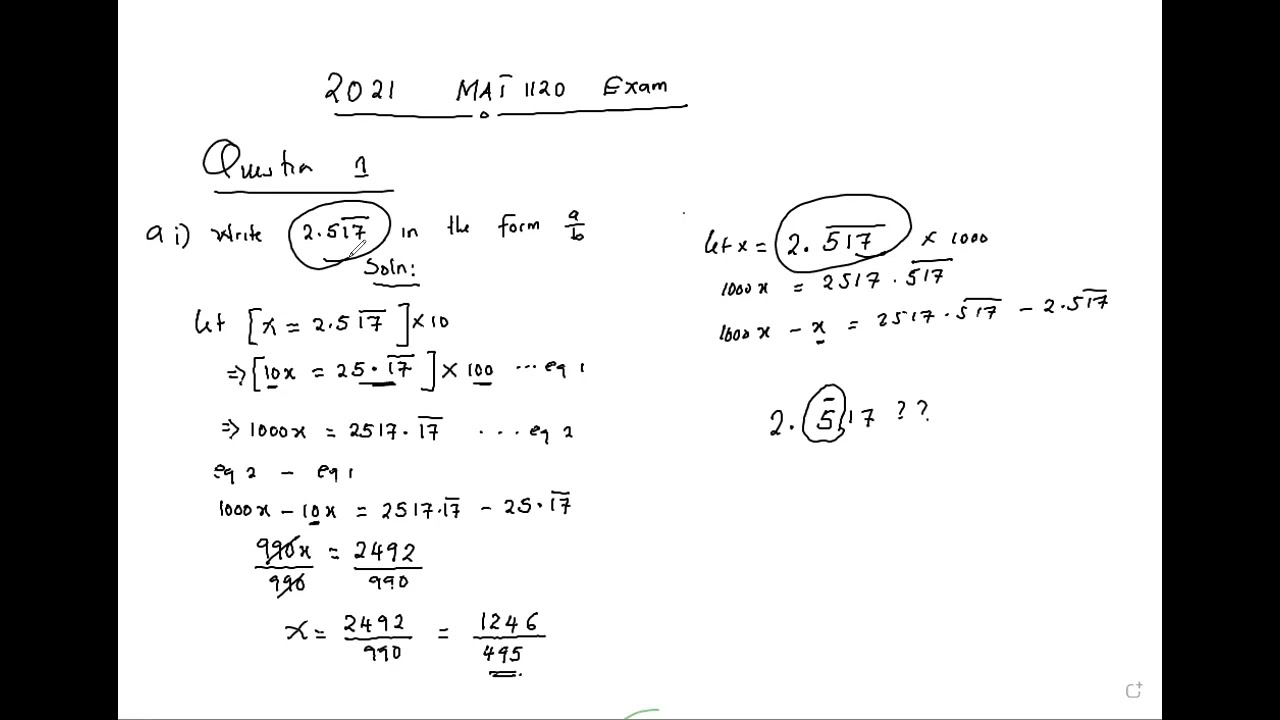 2021 MAT 1120 Exam
Question 1
a i) Write 2.51̅7̅ in the form a/b
Soln:
let [x = 2.51̅7̅] × 10
⇒ [10x = 25.1̅7̅] × 100 ... eq 1
⇒ 1000x = 2517.1̅7̅ ... eq 2
eq 2 − eq 1
1000x − 10x = 2517.1̅7̅ − 25.1̅7̅
990x/990 = 2492/990
x = 2492/990 = 1246/495
let x = 2.5̅1̅7̅ × 1000
1000x = 2517.5̅1̅7̅
1000x − x = 2517.5̅1̅7̅ − 2.51̅7̅
2.5̅17 ??